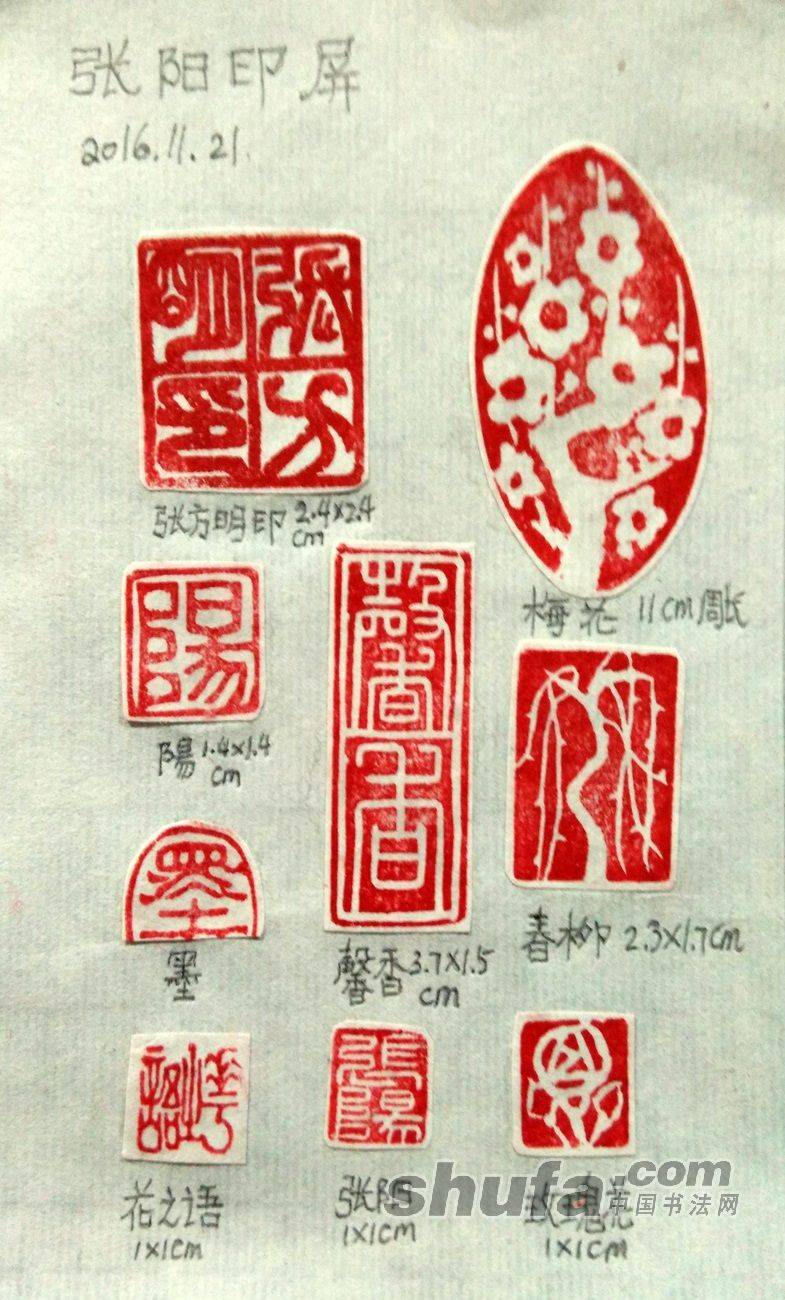 张阳印屏
2016.11.21.
張方
明印
张方明印 2.4×2.4
cm
梅花 11cm周长
陽
陽 1.4×1.4
cm
馨香
馨香 3.7×1.5
cm
春柳 2.3×1.7cm
墨
墨
花之語
花之语
1×1cm
張陽
张阳
1×1cm
玫瑰花
1×1cm
shufa.com
中国书法网